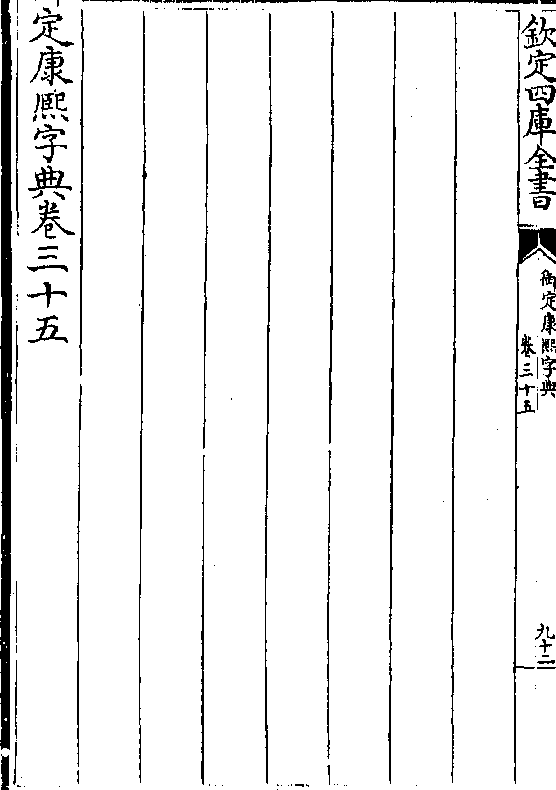 欽定四庫全書
御定康熙字典
卷三十五
九十二
定康熙字典卷三十五